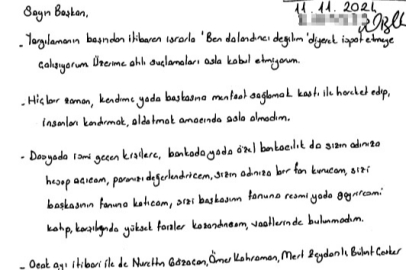 Sayın Başkan,
11.11.2021
- Yargılamanın başından itibaren ısrarla 'Ben dolandırıcı değilim' diyerek ispat etmeye
çalışıyorum Üzerime atılı suçlamaları asla kabul etmiyorum.
- Hiçbir zaman, kendime yada başkasına menfaat sağlamak kastı ile hareket edip,
insanları kandırmak, aldatmak amacında asla olmadım.
- Dosyada ismi geçen kişilere, bankada yada özel bankacılık da sizin adınıza
hesap açıcam, paranızı değerlendiricem, sizin adınıza bir fon kurucam, sizi
başkasının fonuna katıcam, sizi başkasının fonuna resmi yada gayriresmi
katıp, karşılığında yüksek faizler kazandırıcam, vaatlerinde bulunmadım.
- Ocak ayı itibari ile de Nurettin Ömer Kahraman, Mert Bulut